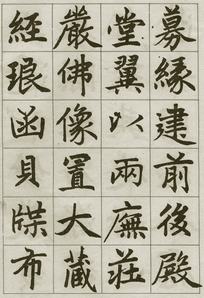 募緣建前後殿
堂翼以兩廡莊
嚴佛像置大藏
經琅函貝牒布